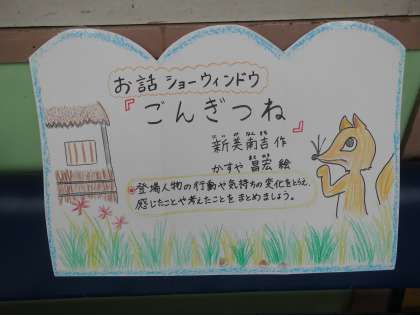 お話 ショーウィンドウ
『ごんぎつね』
新美南吉 作
かすや昌宏 絵
◉登場人物の行動や気持ちの変化をとらえ、
感じたことや考えたことをまとめましょう。